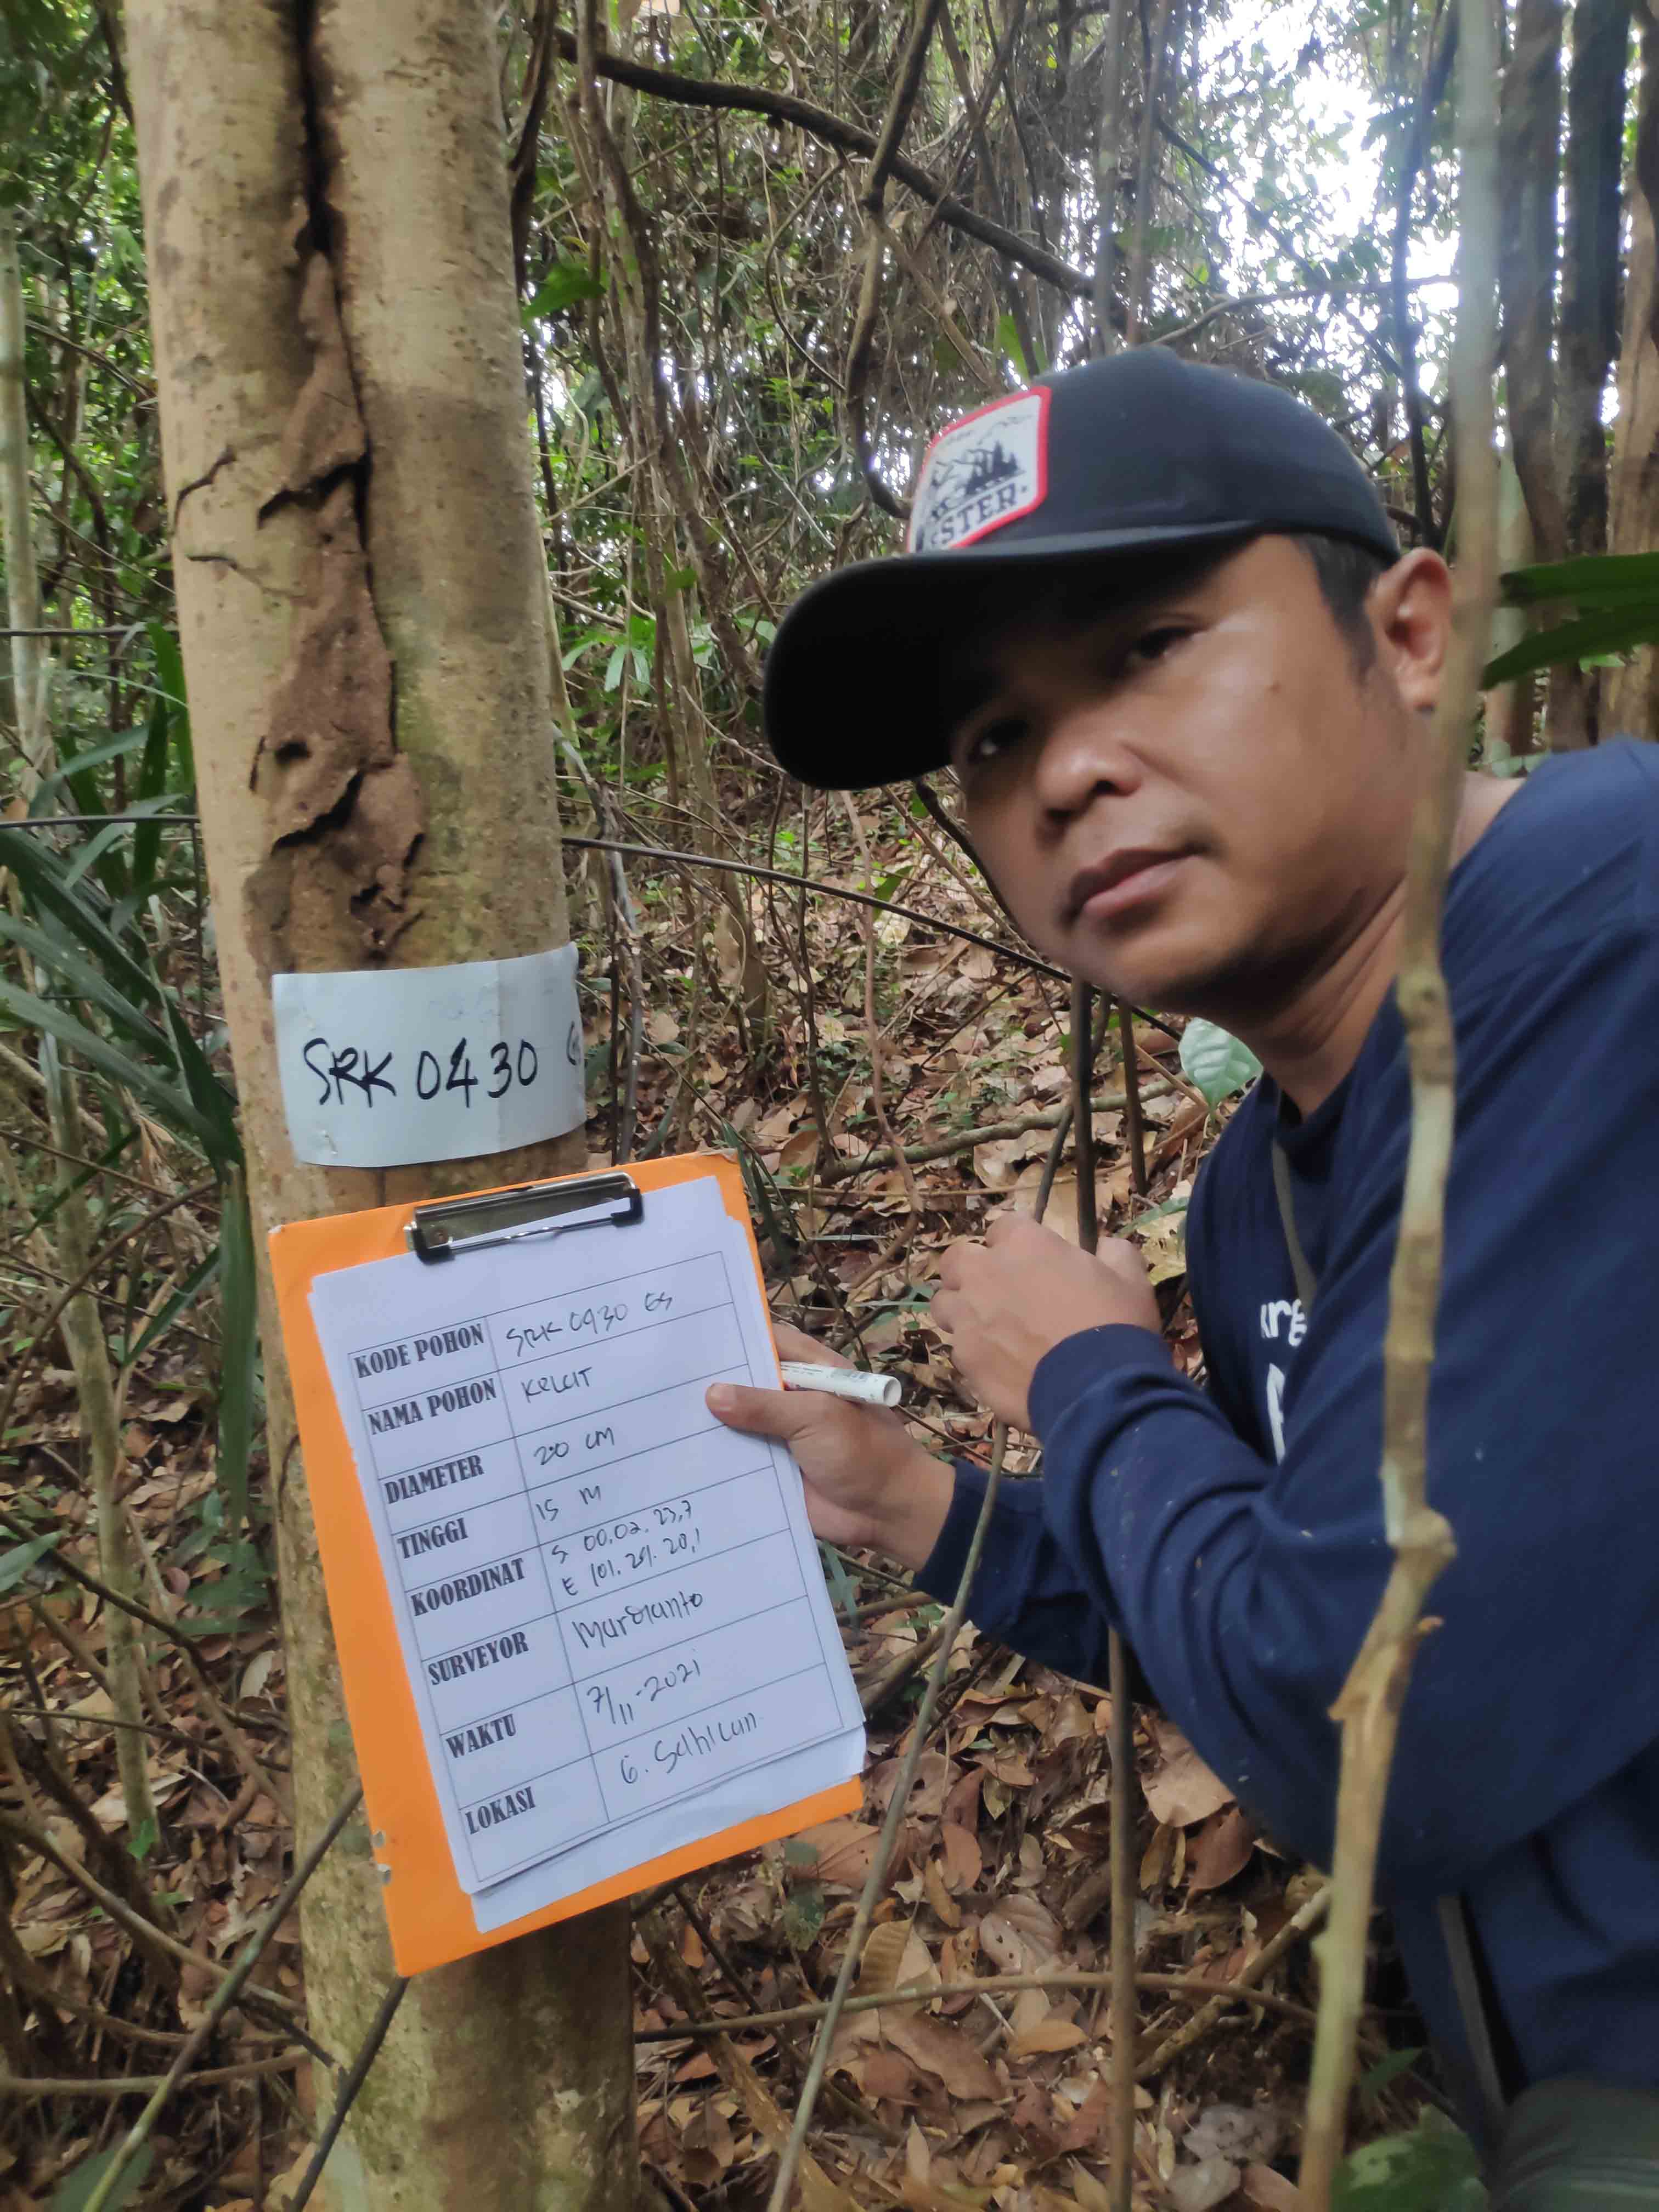 STER
SRK 0430
KODE POHON SRK 0430 GS
NAMA POHON KELAT
DIAMETER 20 CM
TINGGI 15 M
KOORDINAT S 00.02.23,7
E 101.29.20,1
SURVEYOR Mardianto
WAKTU 7/11-2021
LOKASI G. Sahilan